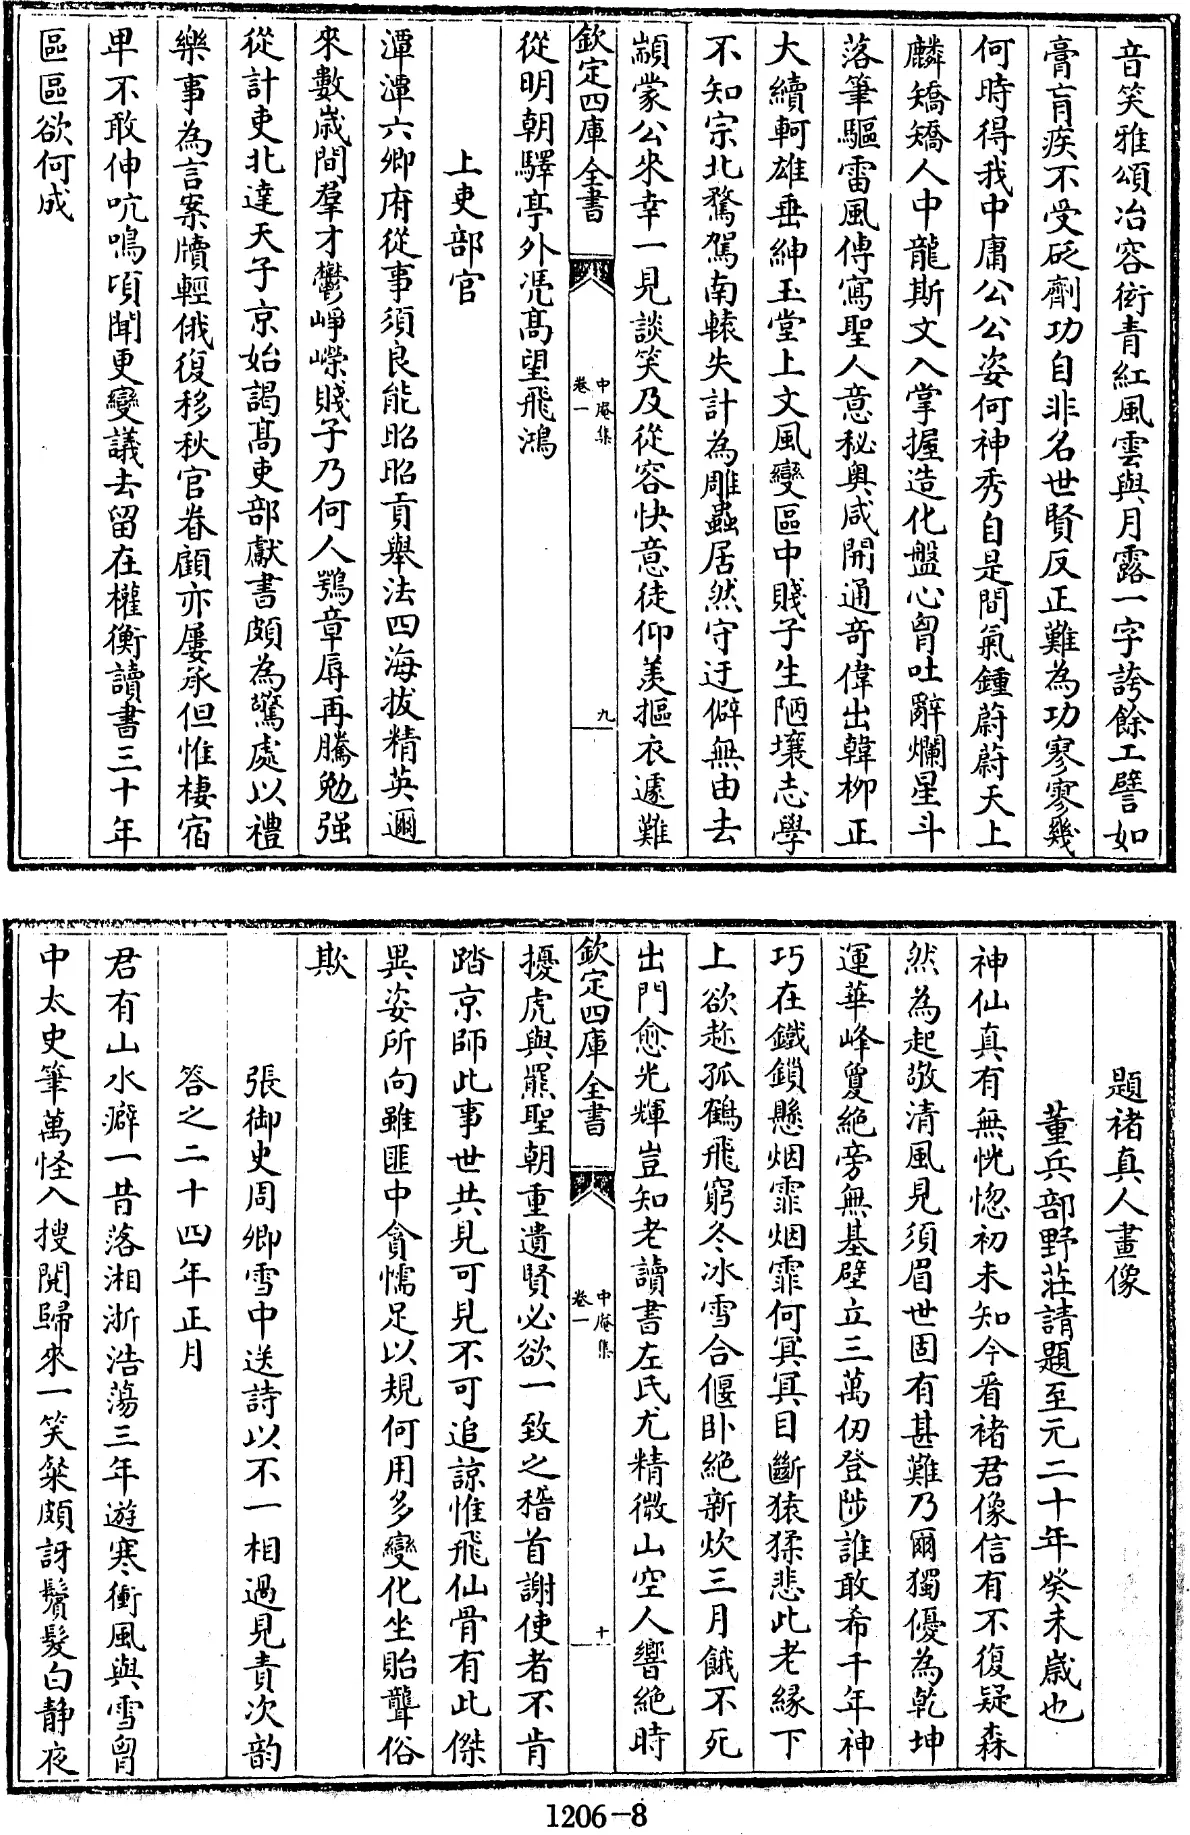 音笑雅頌冶容衒青紅風雲與月露一字誇餘工譬如
膏肓疾不受砭劑功自非名世賢反正難為功寥寥幾
何時得我中庸公公姿何神秀自是間氣鍾蔚蔚天上
麟矯矯人中龍斯文入掌握造化盤心胷吐辭爛星斗
落筆驅雷風傳寫聖人意秘奥咸開通竒偉出韓柳正
大續軻雄垂紳玉堂上文風變區中賤子生陋壤志學
不知宗北鶩駕南轅失計為雕蟲居然守迂僻無由去
顓蒙公來幸一見談笑及從容快意徒仰羡摳衣遽難
欽定四庫全書
中庵集
卷一
九
從明朝驛亭外凭高望飛鴻
上吏部官
潭潭六卿府從事須良能昭昭貢舉法四海拔精英邇
來數歲間羣才鬱崢嶸賤子乃何人鶚章辱再騰勉强
從計吏北達天子京始謁髙吏部獻書頗為驚處以禮
樂事為言案牘輕俄復移秋官眷顧亦屢承但惟棲宿
卑不敢伸吭鳴頃聞更變議去留在權衡讀書三十年
區區欲何成
題褚真人畫像
董兵部野莊請題至元二十年癸未歳也
神仙真有無恍惚初未知今看褚君像信有不復疑森
然為起敬清風見須眉世固有甚難乃爾獨優為乾坤
運華峰敻絶旁無基壁立三萬仞登陟誰敢希千年神
巧在鐵鎖懸烟霏烟霏何冥冥目斷猿猱悲此老緣下
上欲趂孤鶴飛窮冬冰雪合偃卧絶新炊三月餓不死
出門愈光輝豈知老讀書左氏尤精微山空人響絶時
欽定四庫全書
中庵集
卷一
十
擾虎與羆聖朝重遺賢必欲一致之稽首謝使者不肯
踏京師此事世共見可見不可追諒惟飛仙骨有此傑
異姿所向雖匪中貪懦足以規何用多變化坐貽聾俗
欺
張御史周卿雪中送詩以不一相過見責次韵
答之二十四年正月
君有山水癖一昔落湘浙浩蕩三年遊寒衝風與雪胷
中太史筆萬怪入搜閱歸來一笑粲頗訝鬢髮白静夜
1206-8